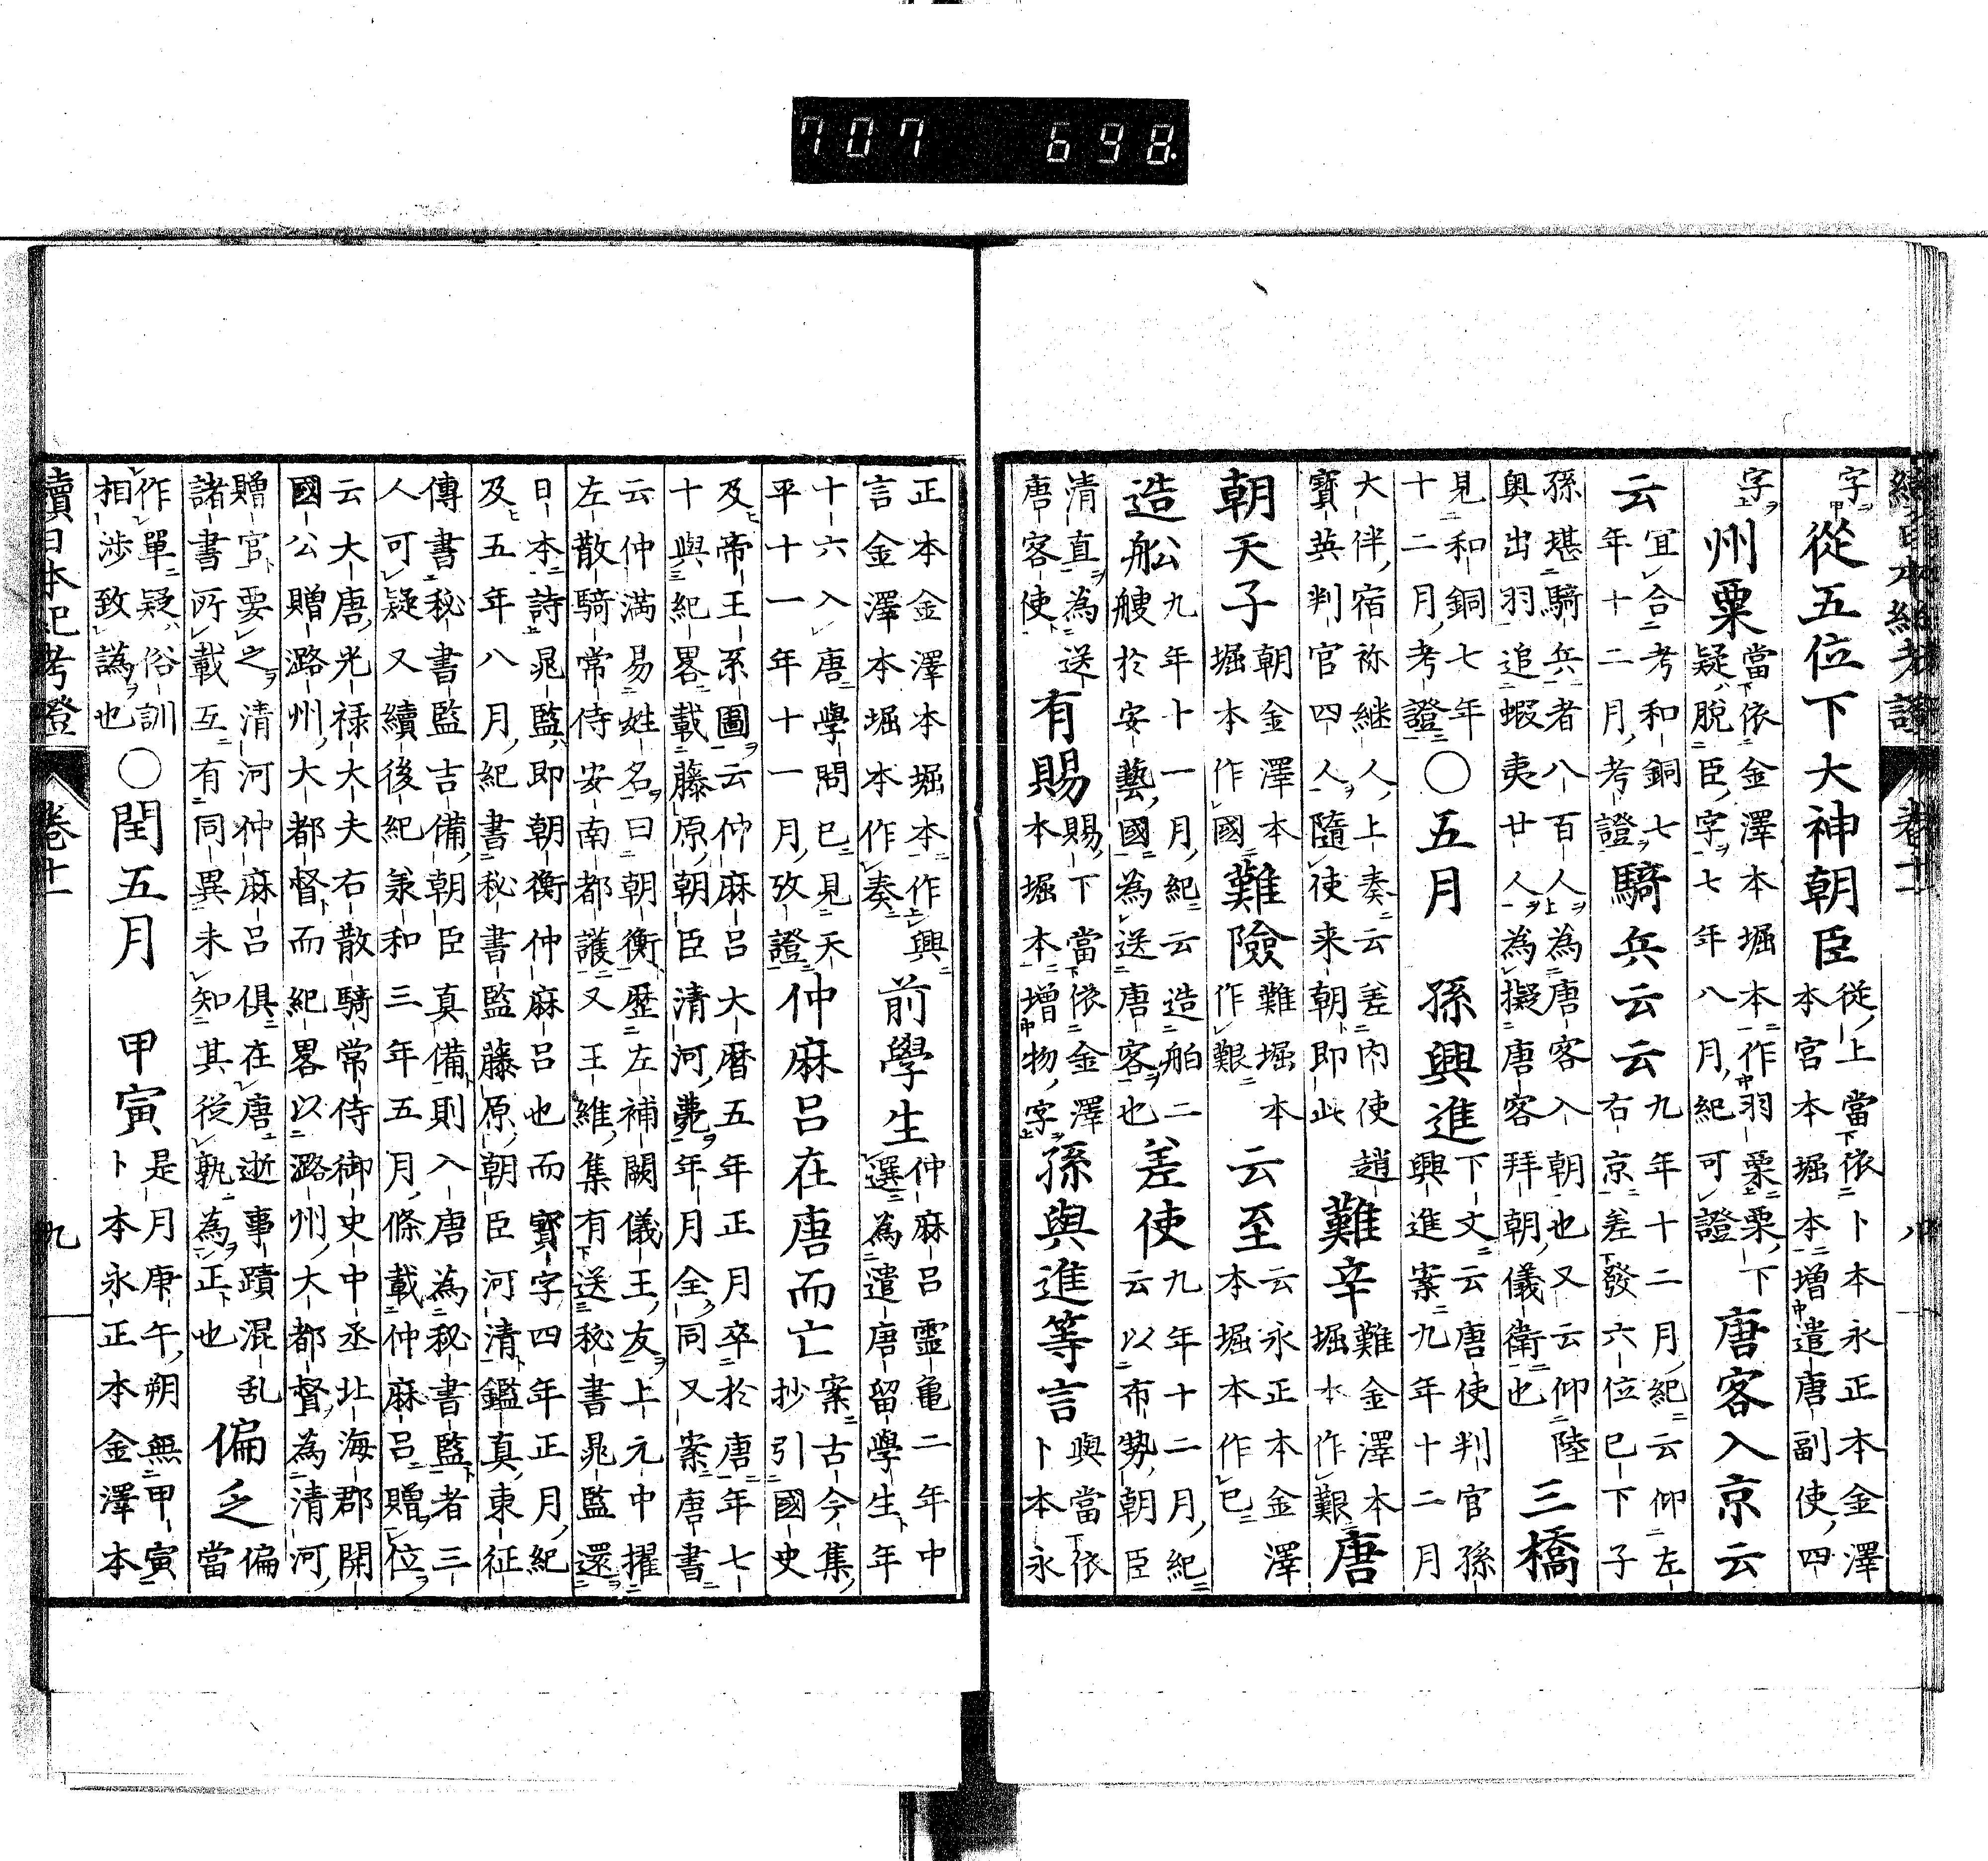 707 698.
續日本紀考證 卷十一 八
字 從五位下大神朝臣 從上當依卜本永正本金澤
本宮本堀本增遣唐副使四
字 州粟 當依金澤本堀本作羽栗栗下
疑脫臣字七年八月紀可證 唐客入京云
云 宜合考和銅七
年十二月考證 騎兵云云 九年十二月紀云仰左
右京差發六位已下子
孫堪騎兵者八百人為唐客入朝也又云仰陸
奥出羽追蝦夷廿人為擬唐客拜朝儀衛也 三橋
見和銅七年
十二月考證 ○五月 孫興進 下文云唐使判官孫
興進案九年十二月
大伴宿祢継人上奏云差內使趙
寶英判官四人隨使来朝即此 難辛 難金澤本
堀本作艱 唐
朝天子 朝金澤本
堀本作國 難險 難堀本
作艱 云至 云永正本金澤
本堀本作已
造舩艘 九年十一月紀云造舶二
於安藝國為送唐客也 差使 九年十二月紀
云以布勢朝臣
清直為送
唐客使 有賜 賜下當依金澤
本堀本增物字 孫與進等言 與當依
卜本永
正本金澤本堀本作興
言金澤本堀本作奏 前學生 仲麻呂靈亀二年中
選為遣唐留學生年
十六入唐學問已見天
平十一年十一月攷證 仲麻呂在唐而亡 案古今集
抄引國史
及帝王系圖云仲麻呂大曆五年正月卒於唐年七
十與紀畧載藤原朝臣清河薨年月全同又案唐書
云仲満易姓名曰朝衡歷左補闕儀王友上元中擢
左散騎常侍安南都護又王維集有送秘書晁監還
日本詩晁監即朝衡仲麻呂也而寶字四年正月紀
及五年八月紀書秘書監藤原朝臣河清鑑真東征
傳書秘書監吉備朝臣真備則入唐為秘書監者三
人可疑又續後紀承和三年五月條載仲麻呂贈位
云大唐光禄大夫右散騎常侍御史中丞北海郡開
國公贈潞州大都督而紀畧以潞州大都督為清河
贈官要之清河仲麻呂俱在唐逝事蹟混乱
諸書所載互有同異未知其從孰為正也 偏乏 偏
當
作單疑俗訓
相涉致譌也 ○閏五月 甲寅 是月庚午朔無甲寅
卜本永正本金澤本
續日本紀考證 卷十一 九